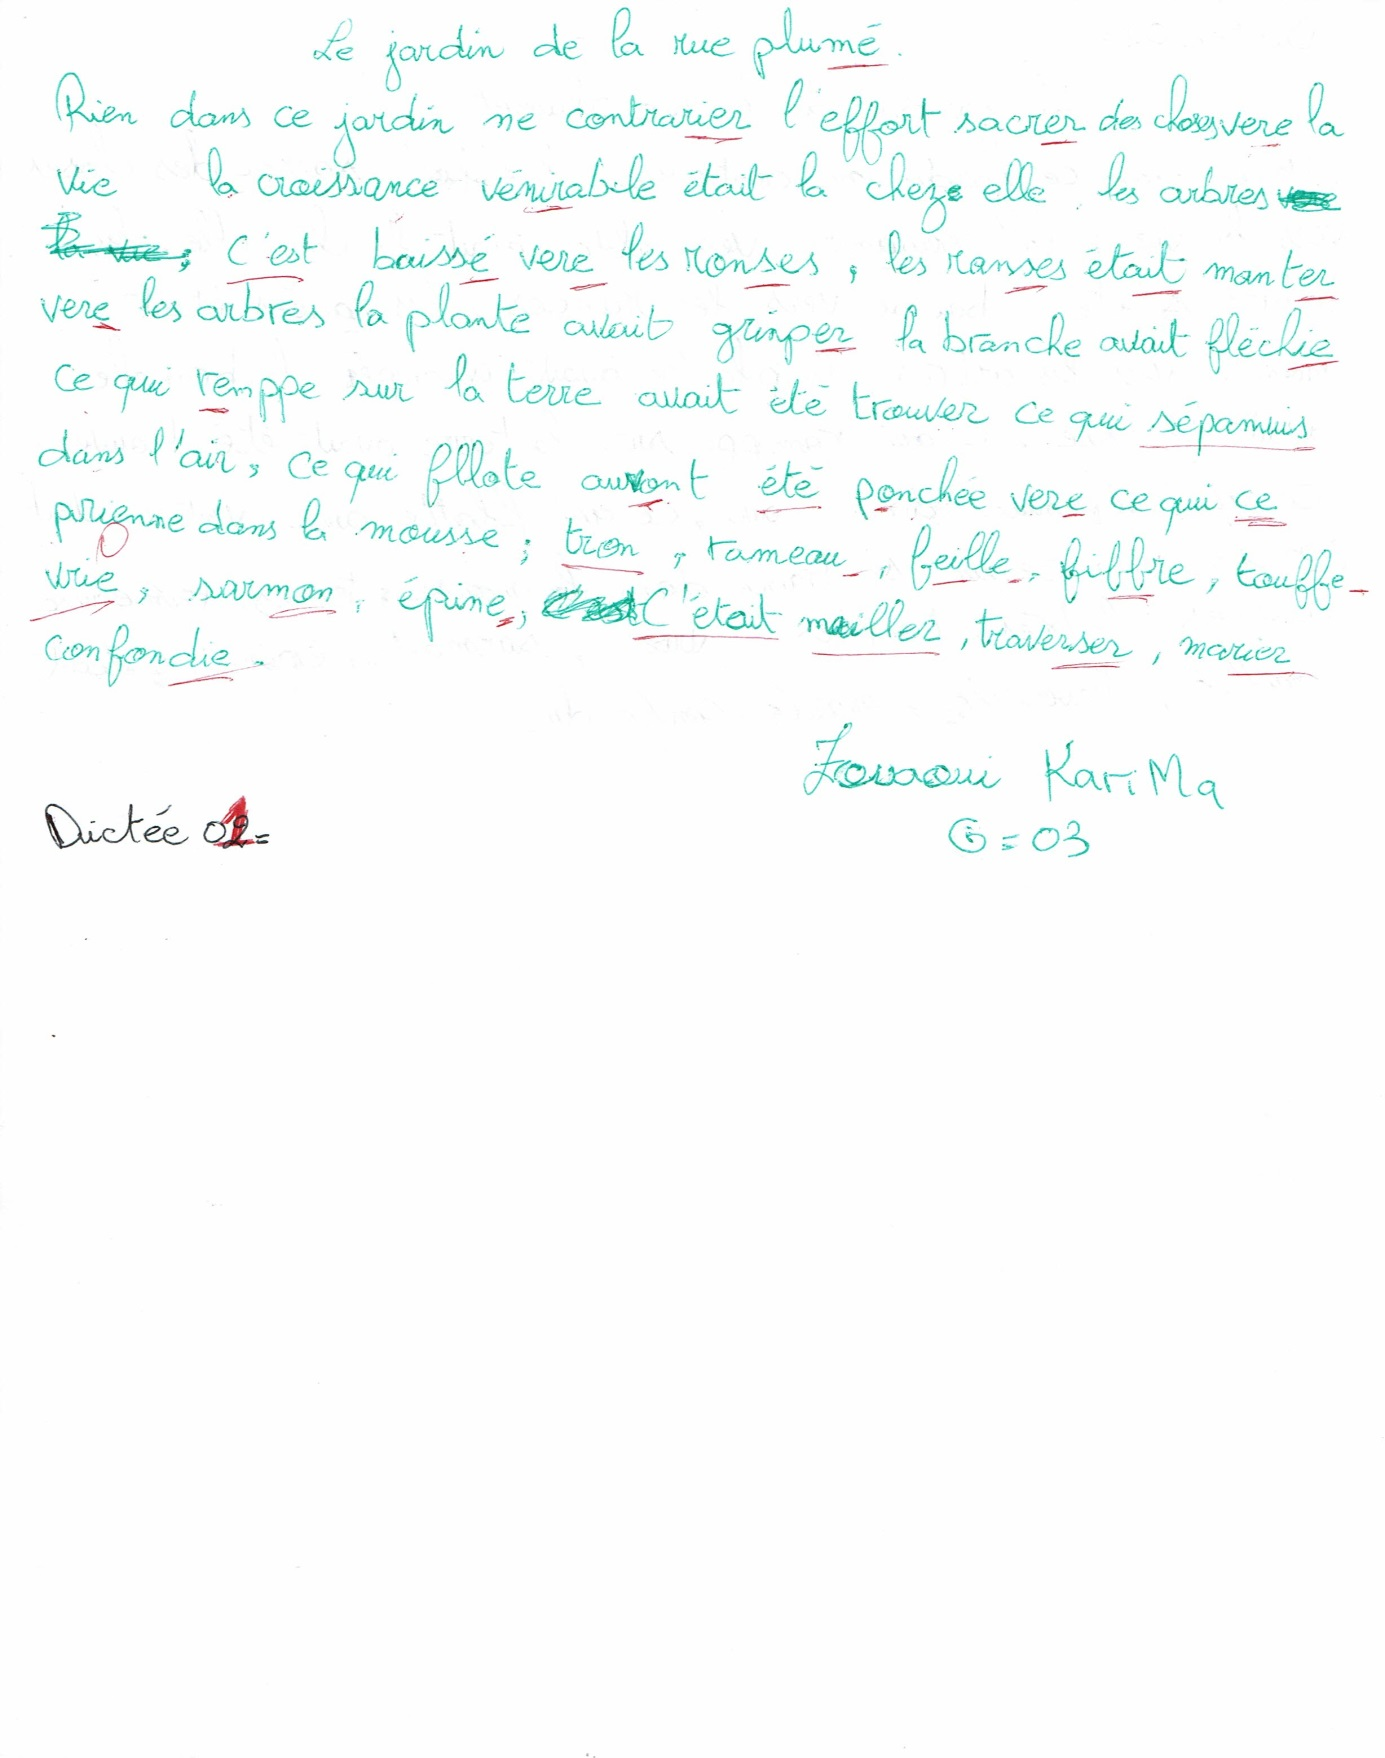 Le jardin de la rue plumé.
Rien dans ce jardin ne contrarier l'effort sacrer des choses vere la
vie la croissance vénirabile était la cheze elle les arbres
C'est baissé vere les ronses, les ranses était manter
vere les arbres la plante avait grinper la branche avait fléchie
ce qui remppe sur la terre avait été trouver ce qui sépamuis
dans l'air, ce qui fllote auront été ponchée vere ce qui ce
prienne dans la mousse ; tron, rameau, feille, fiffre, touffe
vrie, sarmon, épine, C'était mailler, traverser, marier
confondie.
Zouaoui KariMa
Dictée 01=
G=03